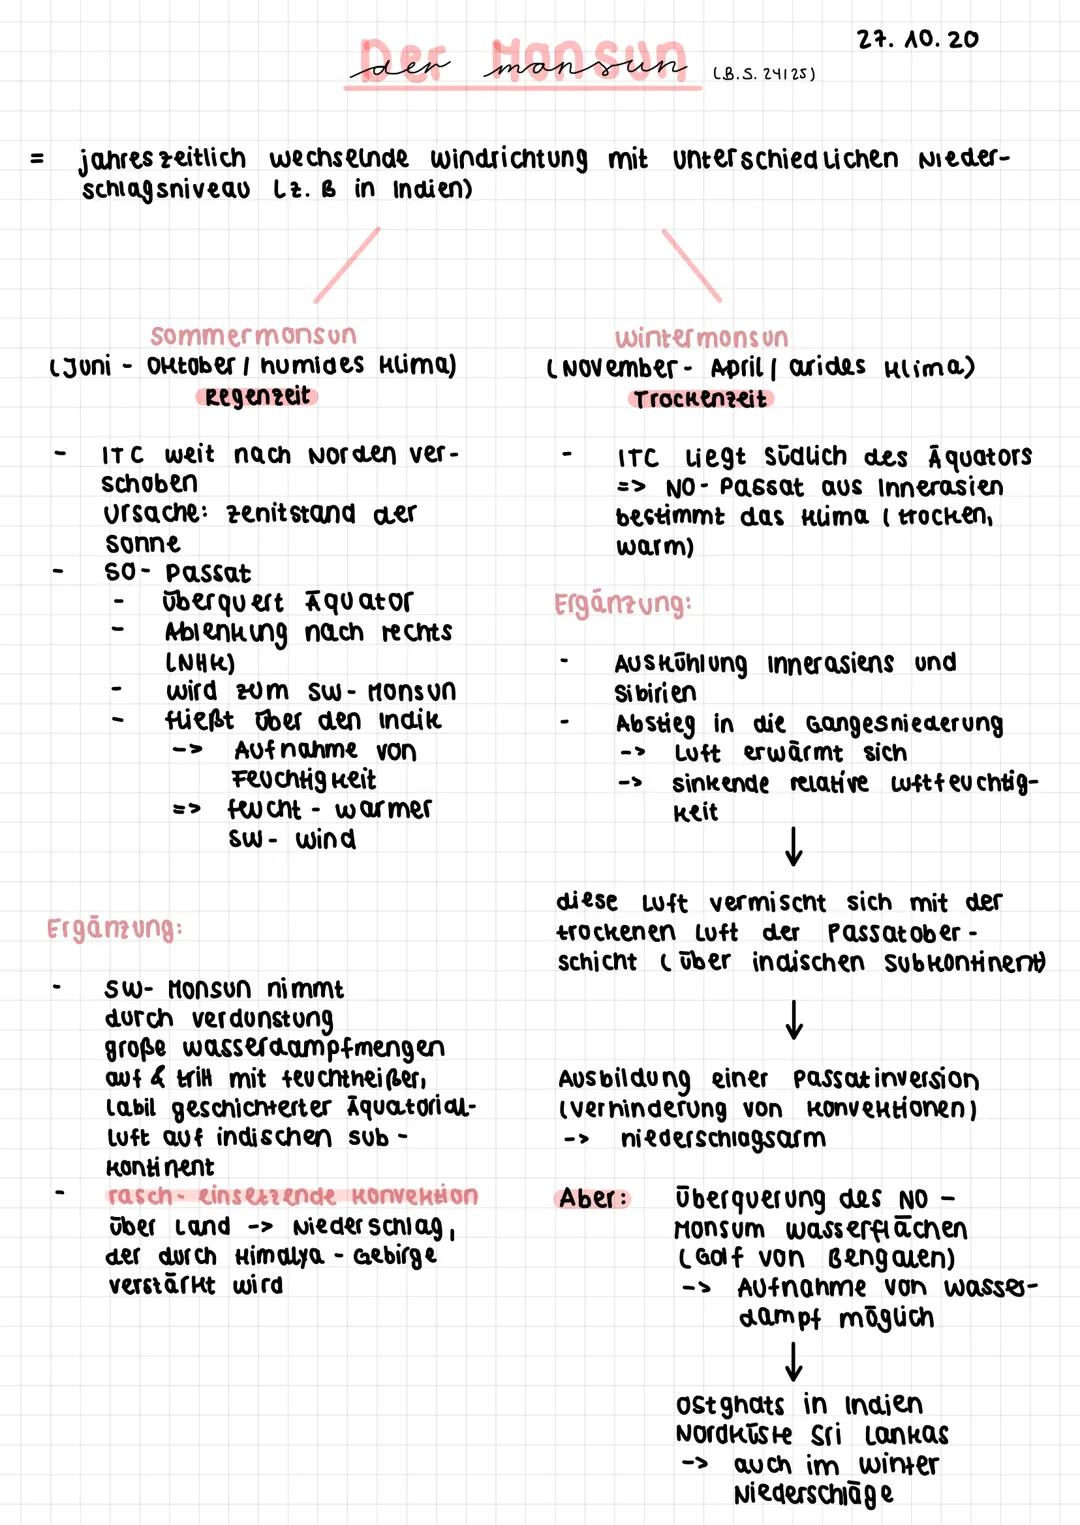 27. 10. 20
Der Monsun
der monsun (B.S. 24125)
= jahreszeitlich wechselnde Windrichtung mit unterschiedlichen Nieder-
schlagsniveau (z. B in Indien)
Sommermonsun
(Juni - Oktober / humides Klima)
Regenzeit
- ITC weit nach Norden ver-
schoben
Ursache: Zenitstand der
Sonne
- SO - Passat
- überquert Äquator
- Ablenkung nach rechts
(NHK)
- wird zum SW - Monsun
- fließt über den Indik
-> Aufnahme von
Feuchtigkeit
=> feucht - warmer
SW - Wind
Ergänzung:
- SW - Monsun nimmt
durch Verdunstung
große Wasserdampfmengen
auf & tritt mit feuchtheißer,
labil geschichterter Äquatorial-
luft auf indischen Sub -
kontinent
- rasch - einsetzende Konvektion
über Land -> Niederschlag,
der durch Himalya - Gebirge
verstärkt wird
Wintermonsun
(November - April / arides Klima)
Trockenzeit
- ITC liegt südlich des Äquators
=> NO - Passat aus Innerasien
bestimmt das Klima (trocken,
warm)
Ergänzung:
- Auskühlung Innerasiens und
Sibirien
- Abstieg in die Gangesniederung
-> Luft erwärmt sich
-> sinkende relative Luftfeuchtig-
keit
↓
diese Luft vermischt sich mit der
trockenen Luft der Passatober -
schicht (über indischen Subkontinent)
↓
Ausbildung einer Passatinversion
(Verhinderung von Konvektionen)
-> niederschlagsarm
Aber: Überquerung des NO -
Monsum Wasserflächen
(Golf von Bengalen)
-> Aufnahme von Wasser-
dampf möglich
↓
Ostghats in Indien
Nordküste Sri Lankas
-> auch im Winter
Niederschläge